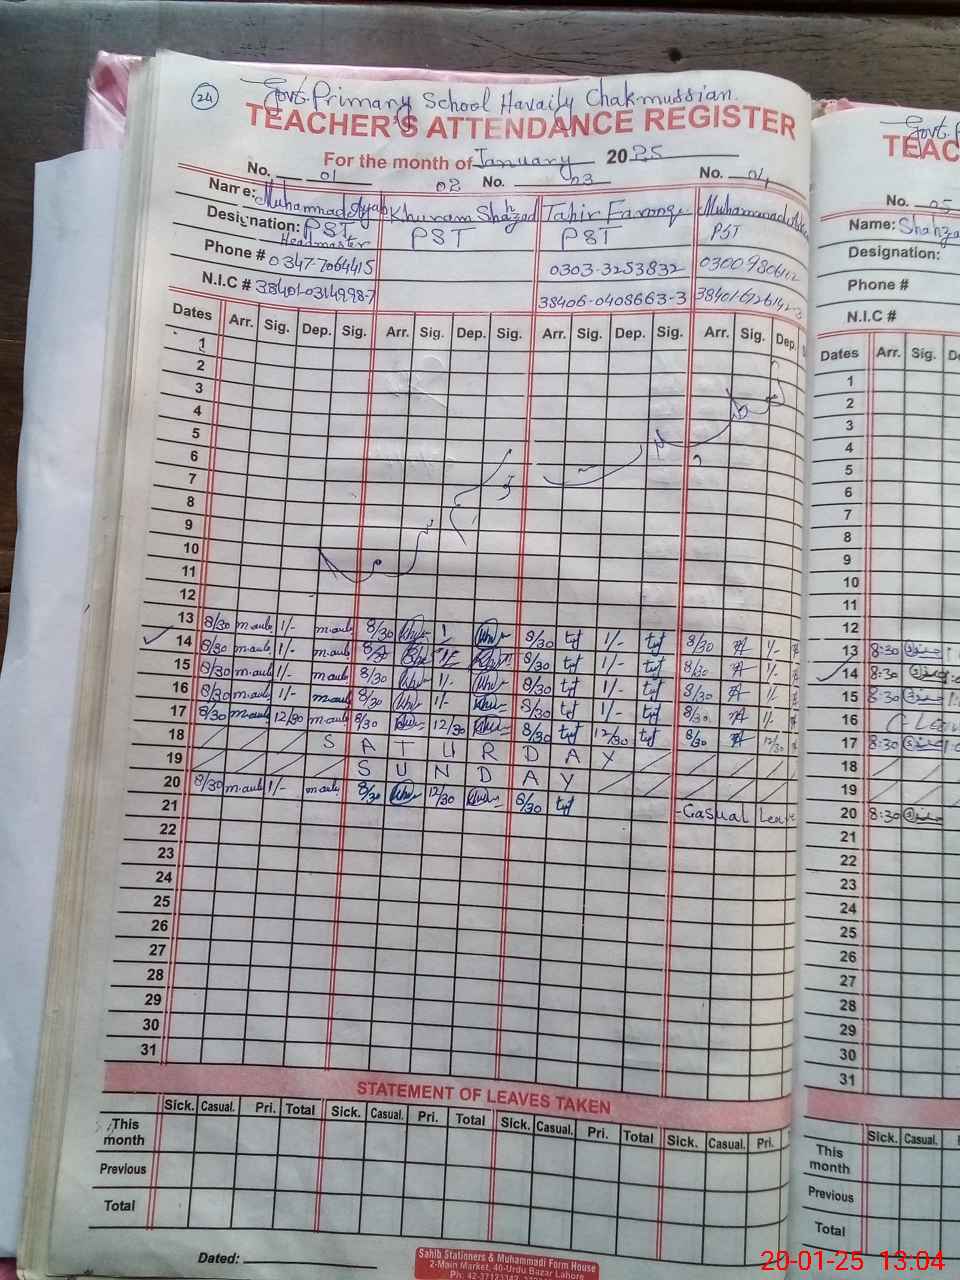 24
Govt. Primary School Havaily Chakmussian.
TEACHER'S ATTENDANCE REGISTER
For the month of January 2025
No. 01 02 No. 03 No. 04
Name: Muhammad Ayab Khuram Shahzad Tahir Farooq Muhammad
Designation: PST PST PST PST
Headmaster
Phone # 0347-7064415 0303-3253832
N.I.C # 38401-0314998-7 38406-0408663-3
Dates Arr. Sig. Dep. Sig. Arr. Sig. Dep. Sig. Arr. Sig. Dep. Sig. Arr. Sig. Dep.
1
2
3
4
5
6
7
8
9
10
11
12
13 8/30 m.aub 1/- m.aub 8/30 1 8/30 1/- 8/30 1/-
14 8/30 m.aub 1/- m.aub 8/30 1/- 8/30 1/- 8/30 1/-
15 8/30 m.aub 1/- m.aub 8/30 1/- 8/30 1/- 8/30 1/-
16 8/30 m.aub 1/- m.aub 8/30 1/- 8/30 1/- 8/30 1/-
17 8/30 m.aub 12/30 m.aub 8/30 12/30 8/30 12/30 8/30 12/30
18 SATURDAY
19 SUNDAY
20 8/30 m.aub 1/- m.aub 8/30 12/30 8/30 Casual Leave
21
22
23
24
25
26
27
28
29
30
31
STATEMENT OF LEAVES TAKEN
Sick. Casual. Pri. Total Sick. Casual. Pri. Total Sick. Casual. Pri. Total Sick. Casual. Pri.
This month
Previous
Total
Dated:
Sahib Stationers & Muhammadi Form House
2-Main Market, 40-Urdu Bazar Lahore
Govt. P
TEAC
No. 05
Name: Shahza
Designation:
Phone #
N.I.C #
Dates Arr. Sig. De
1
2
3
4
5
6
7
8
9
10
11
12
13 8:30
14 8:30
15 8:30
16 C Leav
17 8:30
18
19
20 8:30
21
22
23
24
25
26
27
28
29
30
31
Sick. Casual.
This month
Previous
Total
20-01-25 13:04